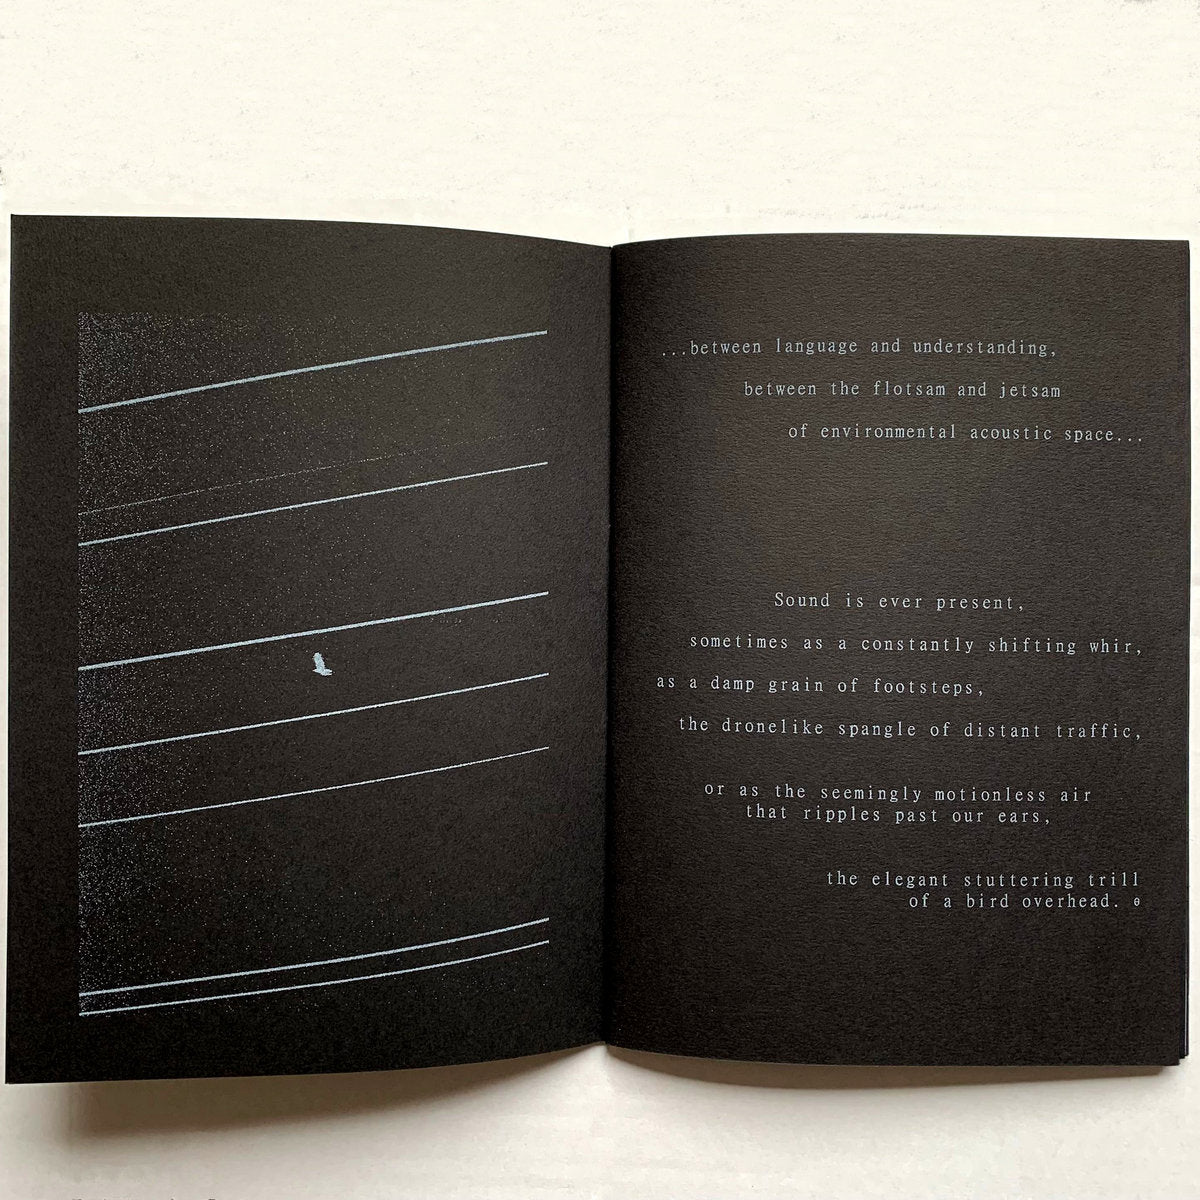 ...between language and understanding,
between the flotsam and jetsam
of environmental acoustic space...
Sound is ever present,
sometimes as a constantly shifting whir,
as a damp grain of footsteps,
the dronelike spangle of distant traffic,
or as the seemingly motionless air
that ripples past our ears,
the elegant stuttering trill
of a bird overhead. θ